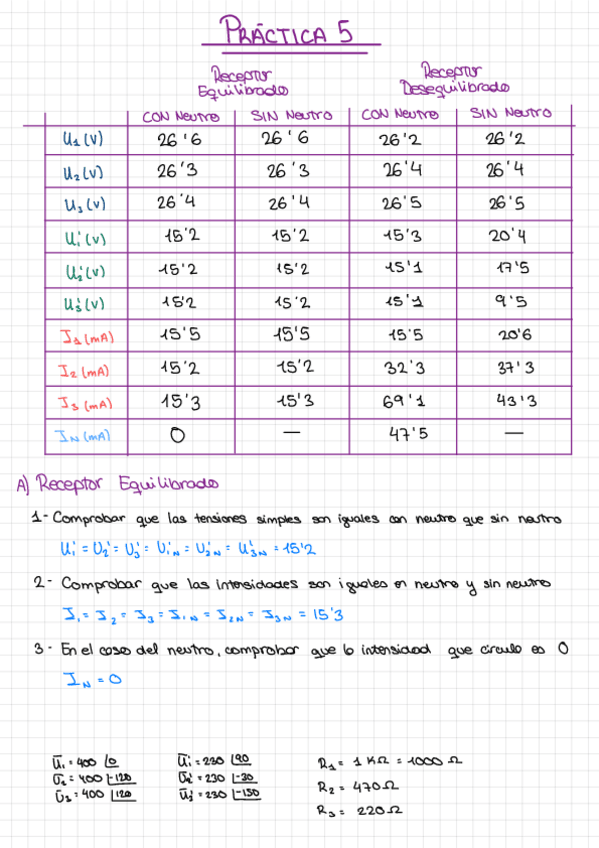 PRÁCTICA 5
Receptor Equilibrado Receptor Desequilibrado
CON Neutro SIN Neutro CON Neutro SIN Neutro
U1 (V) 26'6 26'6 26'2 26'2
U2 (V) 26'3 26'3 26'4 26'4
U3 (V) 26'4 26'4 26'5 26'5
U1' (V) 15'2 15'2 15'3 20'4
U2' (V) 15'2 15'2 15'1 17'5
U3' (V) 15'2 15'2 15'1 9'5
I1 (mA) 15'5 15'5 15'5 20'6
I2 (mA) 15'2 15'2 32'3 37'3
I3 (mA) 15'3 15'3 69'1 43'3
IN (mA) 0 — 47'5 —
A) Receptor Equilibrado
1- Comprobar que las tensiones simples son iguales con neutro que sin neutro
U1' = U2' = U3' = U1'N = U2'N = U3'N = 15'2
2- Comprobar que las intensidades son iguales en neutro y sin neutro
I1 = I2 = I3 = I1N = I2N = I3N = 15'3
3- En el caso del neutro, comprobar que la intensidad que circula es 0
IN = 0
U1 = 400 |0 U1' = 230 |90 R1 = 1 KΩ = 1000 Ω
U2 = 400 |-120 U2' = 230 |-30 R2 = 470 Ω
U3 = 400 |120 U3' = 230 |-150 R3 = 220 Ω